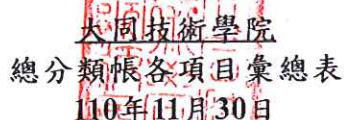 大同技術學院
總分類帳各項目彙總表
110年11月30日